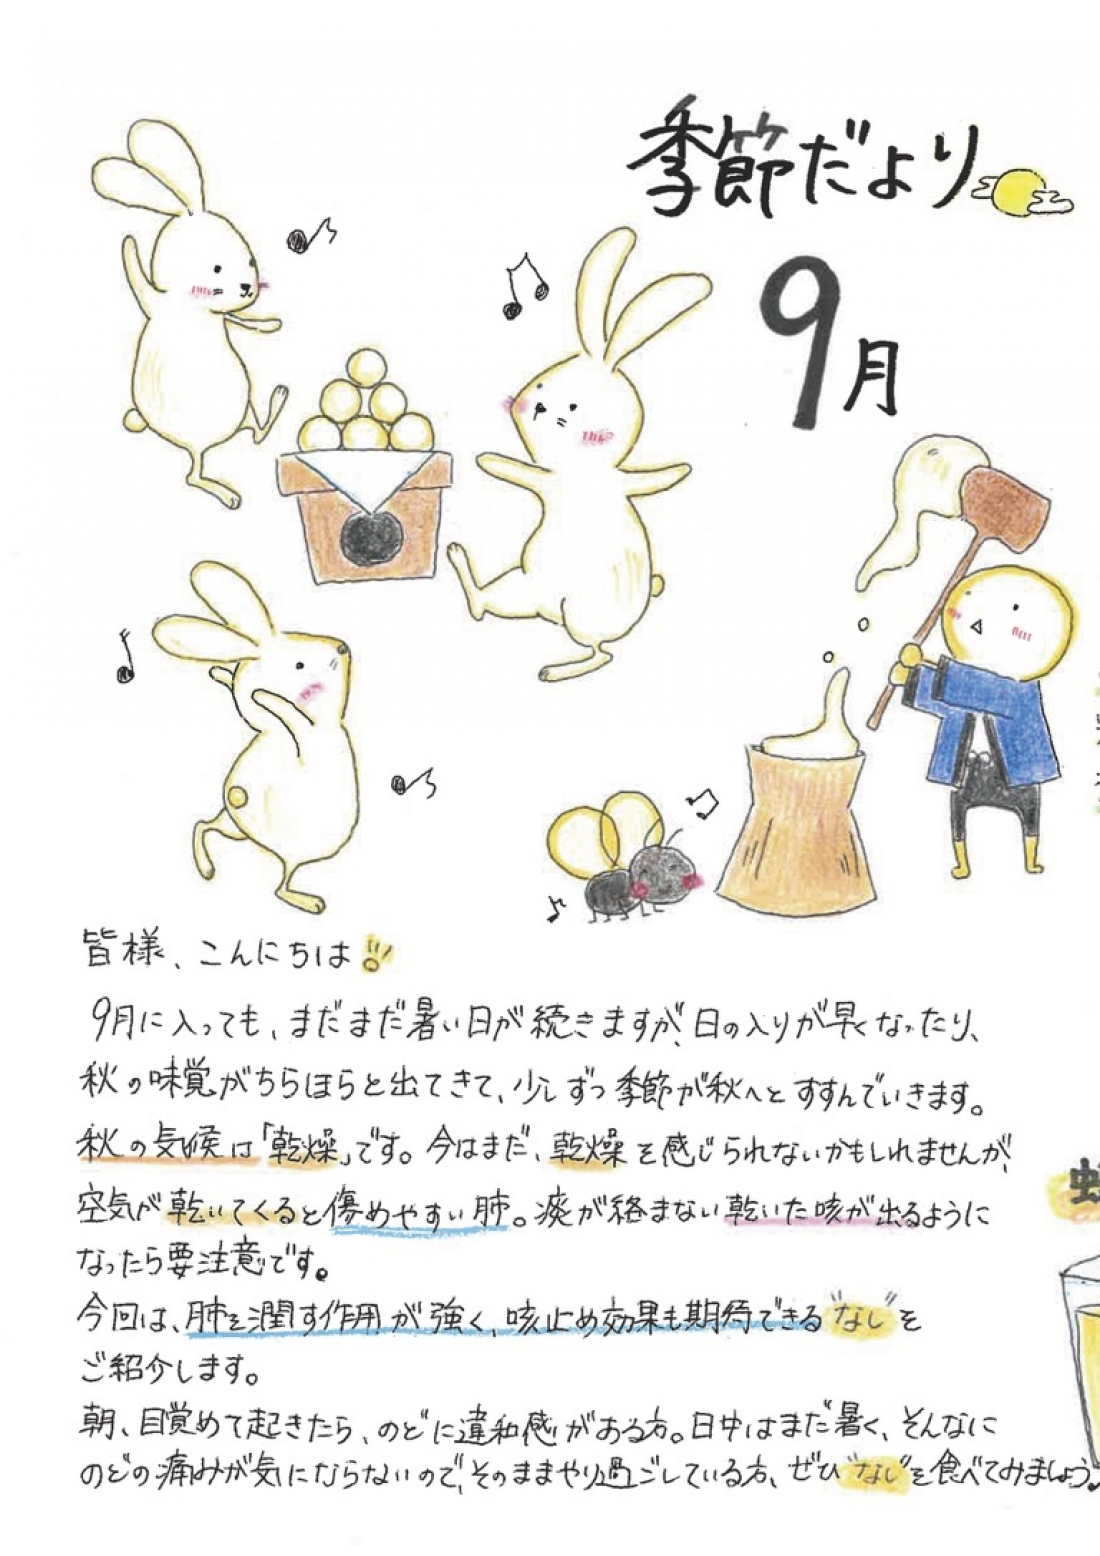 季節だより
9月
皆様、こんにちは!!
9月に入っても、まだまだ暑い日が続きますが、日の入りが早くなったり、
秋の味覚がちらほらと出てきて、少しずつ季節が秋へとすすんでいきます。
秋の気候は「乾燥」です。今はまだ、乾燥を感じられないかもしれませんが、
空気が乾いてくると傷めやすい肺。痰が絡まない乾いた咳が出るように
なったら要注意です。
今回は、肺を潤す作用が強く、咳止め効果も期待できる"なし"を
ご紹介します。
朝、目覚めて起きたら、のどに違和感がある方。日中はまだ暑く、そんなに
のどの痛みが気にならないので、そのままやり過ごしている方、ぜひ"なし"を食べてみましょう♪